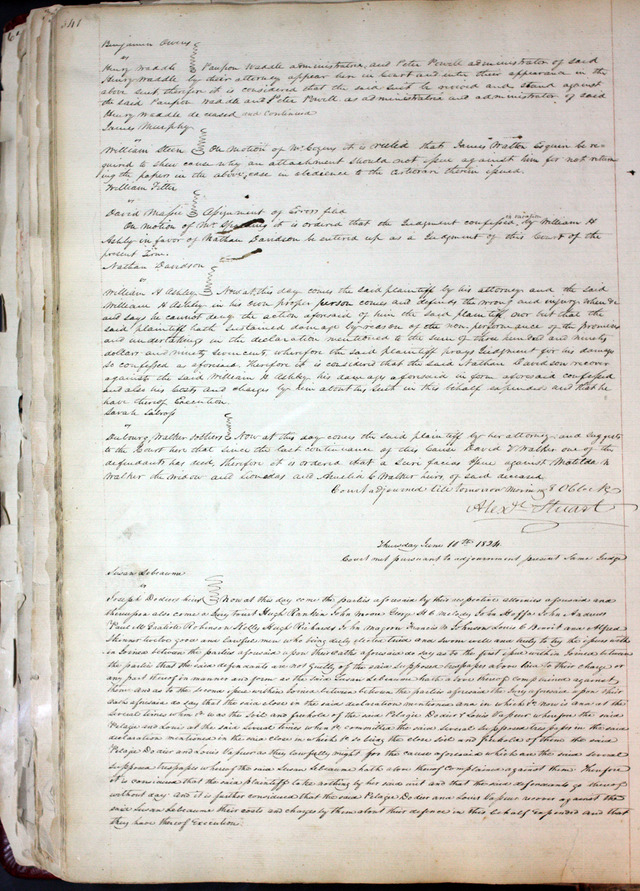 341
Benjamin Owens
vs
Henry Waddle Paupon Waddle administratrix, and Peter Powell administrator of said
Henry Waddle by their attorney appear here in Court and enter their appearance in the
above suit therefore it is considered that the said suit be revived and stand against
the said Paupon Waddle and Peter Powell as administratrix and administrator of said
Henry Waddle deceased and continued
James Murphy
vs
William Steen On motion of Mr. it is ordered that James Walton be re-
quired to shew cause why an attachment should not issue against him for not return
ing the papers in the above case in obedience to the Certiorari therein issued.
William Tilter
vs
David Massie Assignment of Errors filed
On motion of Mr. it is ordered that the Judgment confessed in vacation by William H
Ashley in favor of Nathan Davidson be entered up as a Judgment of this Court of the
present Term.
Nathan Davidson
vs
William H Ashley Now at this day comes the said plaintiff by his attorney and the said
William H Ashley in his own proper person comes and defends the wrong and injury when &c
and says he cannot deny the action aforesaid of him the said plaintiff nor but that the
said plaintiff hath sustained damage by reason of the non performance of the promises
and undertakings in the declaration mentioned to the sum of three hundred and ninety
dollars and ninety seven cents, wherefore the said plaintiff prays Judgment for his damages
so confessed as aforesaid, therefore it is considered that the said Nathan Davidson recover
against the said William H. Ashley his damages aforesaid in form aforesaid confessed
and also his costs and charges by him about his suit in this behalf expended and that he
have thereof Execution.
Sarah
vs
Duburg, Walker & others Now at this day comes the said plaintiff by her attorney and suggests
to the Court here that since the last continuance of this Cause David Walker one of the
defendants has died, therefore it is ordered that a Scire facias issue against Matilda N
Walker the widow and and Amelia C Walker heirs of said deceased
Court adjourned till tomorrow morning 8 O'Clock
Alexr. Stuart
Thursday June 10th 1824.
Court met pursuant to adjournment present Same Judge
Susan Lebeaume
vs
Joseph Dodiers heirs Now at this day come the parties aforesaid by their respective attornies aforesaid and
thereupon also come a Jury to wit Hugh Rankin John Moore M. John John Andrews
Paul Robinson Hugh Richards Jno Magwin Francis Johnson Louis Benoit and Alfred
Skinner twelve good and lawful men who being duly elected tried and sworn well and truly to try the issues within
in Joined between the parties aforesaid upon their oaths aforesaid do say as to the first issue within Joined between
the parties that the said defendants are not guilty of the said supposed trespasses above laid to their charge or
any part thereof in manner and form as the said Susan Lebeaume hath above thereof complained against
them. and as to the second issue within Joined between the parties aforesaid the Jury aforesaid upon their
oaths aforesaid do say that the said close in the said declaration mentioned and in which &c now is and at the
several times when &c was the soil and freehold of the said Pelagie Dodier & Louis Papin wherefore the said
Pelagie and Louis at the said several times when &c committed the said several supposed trespasses in the said
declaration mentioned in the said close in which &c so being the close soil and freehold of them the said
Pelagie Dodier and Louis Papin as they lawfully might for the cause aforesaid which are the said several
supposed trespasses whereof the said Susan Lebeaume hath above thereof Complained against them. Therefore
it is considered that the said plaintiff take nothing by his said writ and that the said defendants go thereof
without day. And it is further considered that the said Pelagie Dodier and Louis Papin recover against the
said Susan Lebeaume their costs and charges by them about their defence in this behalf expended and that
they have thereof Execution.